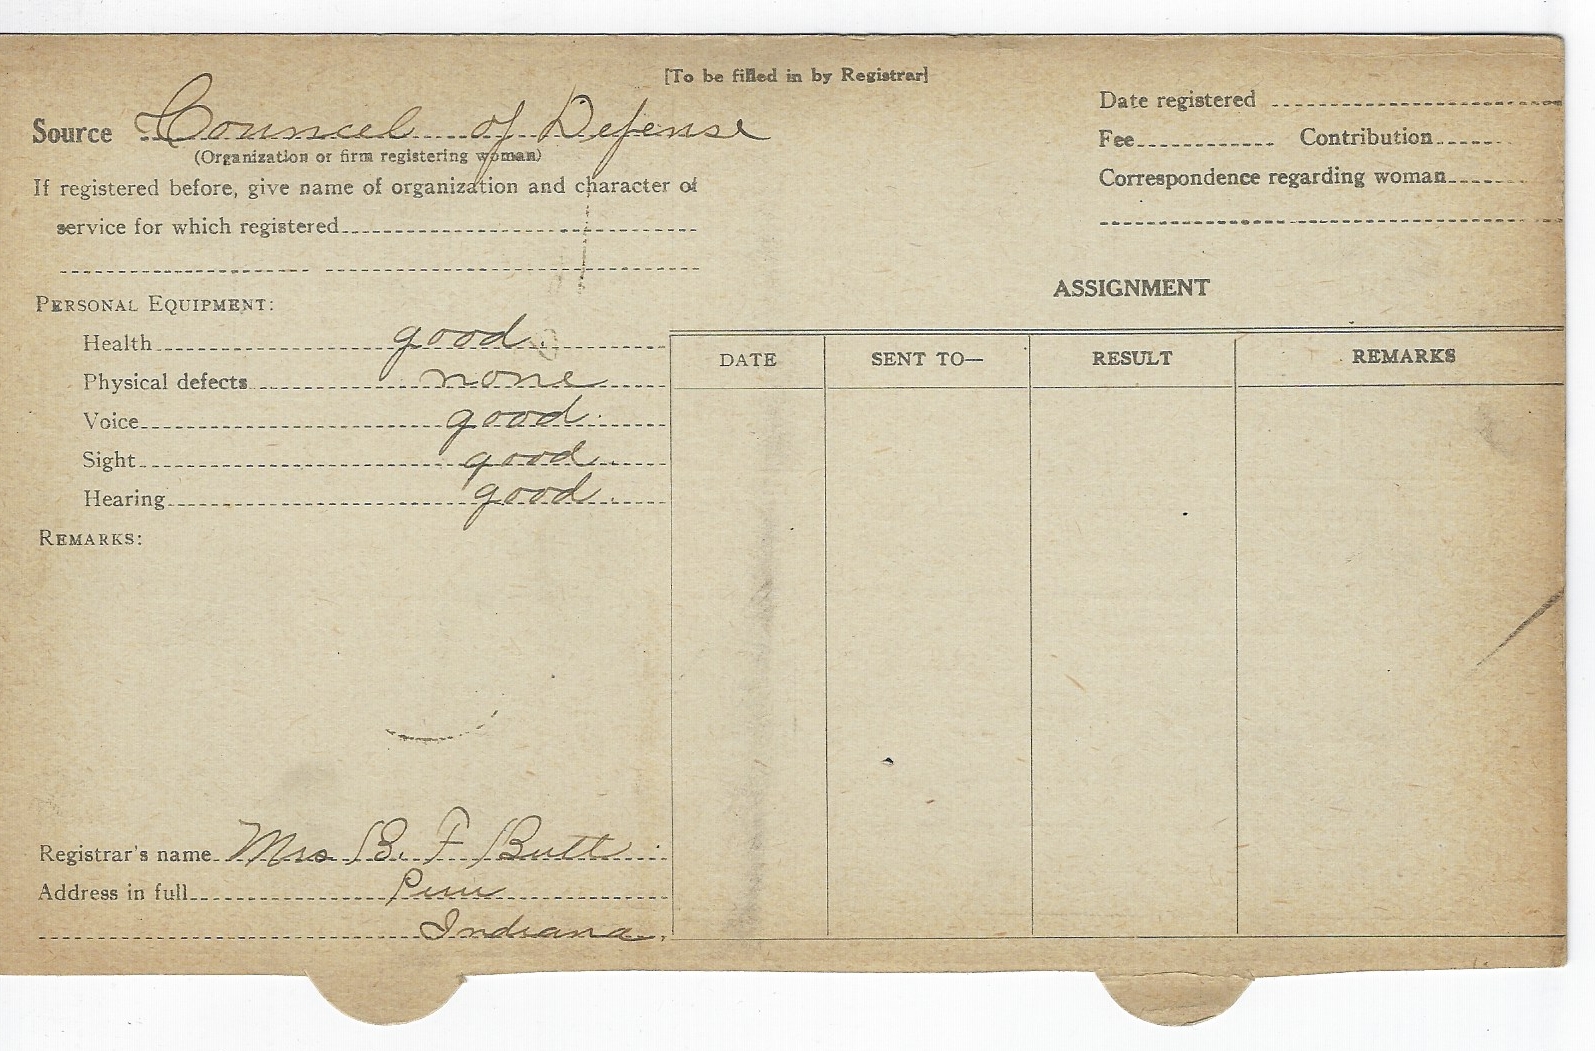 [To be filled in by Registrar]
Source Councel of Defense
(Organization or firm registering woman)
If registered before, give name of organization and character of
service for which registered
Date registered
Fee Contribution
Correspondence regarding woman
PERSONAL EQUIPMENT:
Health good
Physical defects none
Voice good
Sight good
Hearing good
REMARKS:
Registrar's name Mrs B. F Butt
Address in full Peru
Indiana
ASSIGNMENT
DATE SENT TO— RESULT REMARKS